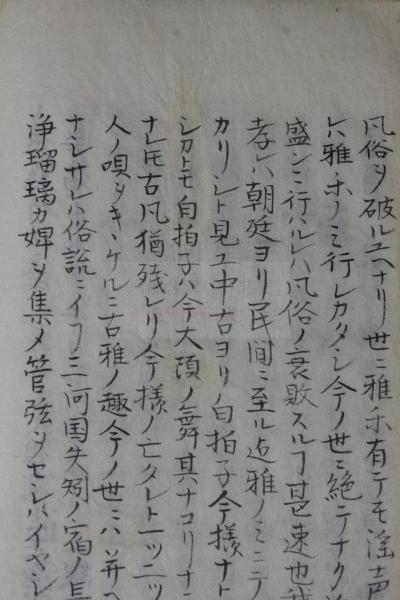 凡俗ヲ破ルユヘナリ世ニ雅乐有テモ淫声
ハ雅乐ノミ行レカタシ今ノ世ニ絶テナク
盛ンニ行ハルレハ凡俗ノ衰敗スルヿ甚速也
孝レハ朝廷ヨリ民間ニ至ル迠雅ノミニテ
カリシト見ユ中古ヨリ白拍子今様ナト
シカトモ白拍子ハ今大頭ノ舞其ナコリナ
ナレ𪜈古凡猶残レリ今様ノ亡タレト一ツ二ツ
人ノ唄ヲキヽケルニ古雅ノ趣今ノ世ニハ並ヘ
ナシサレハ俗説ニイフ三河国矢矧ノ宿ノ長
浄瑠璃カ婢ヲ集メ管弦ヲセシハイヤシ